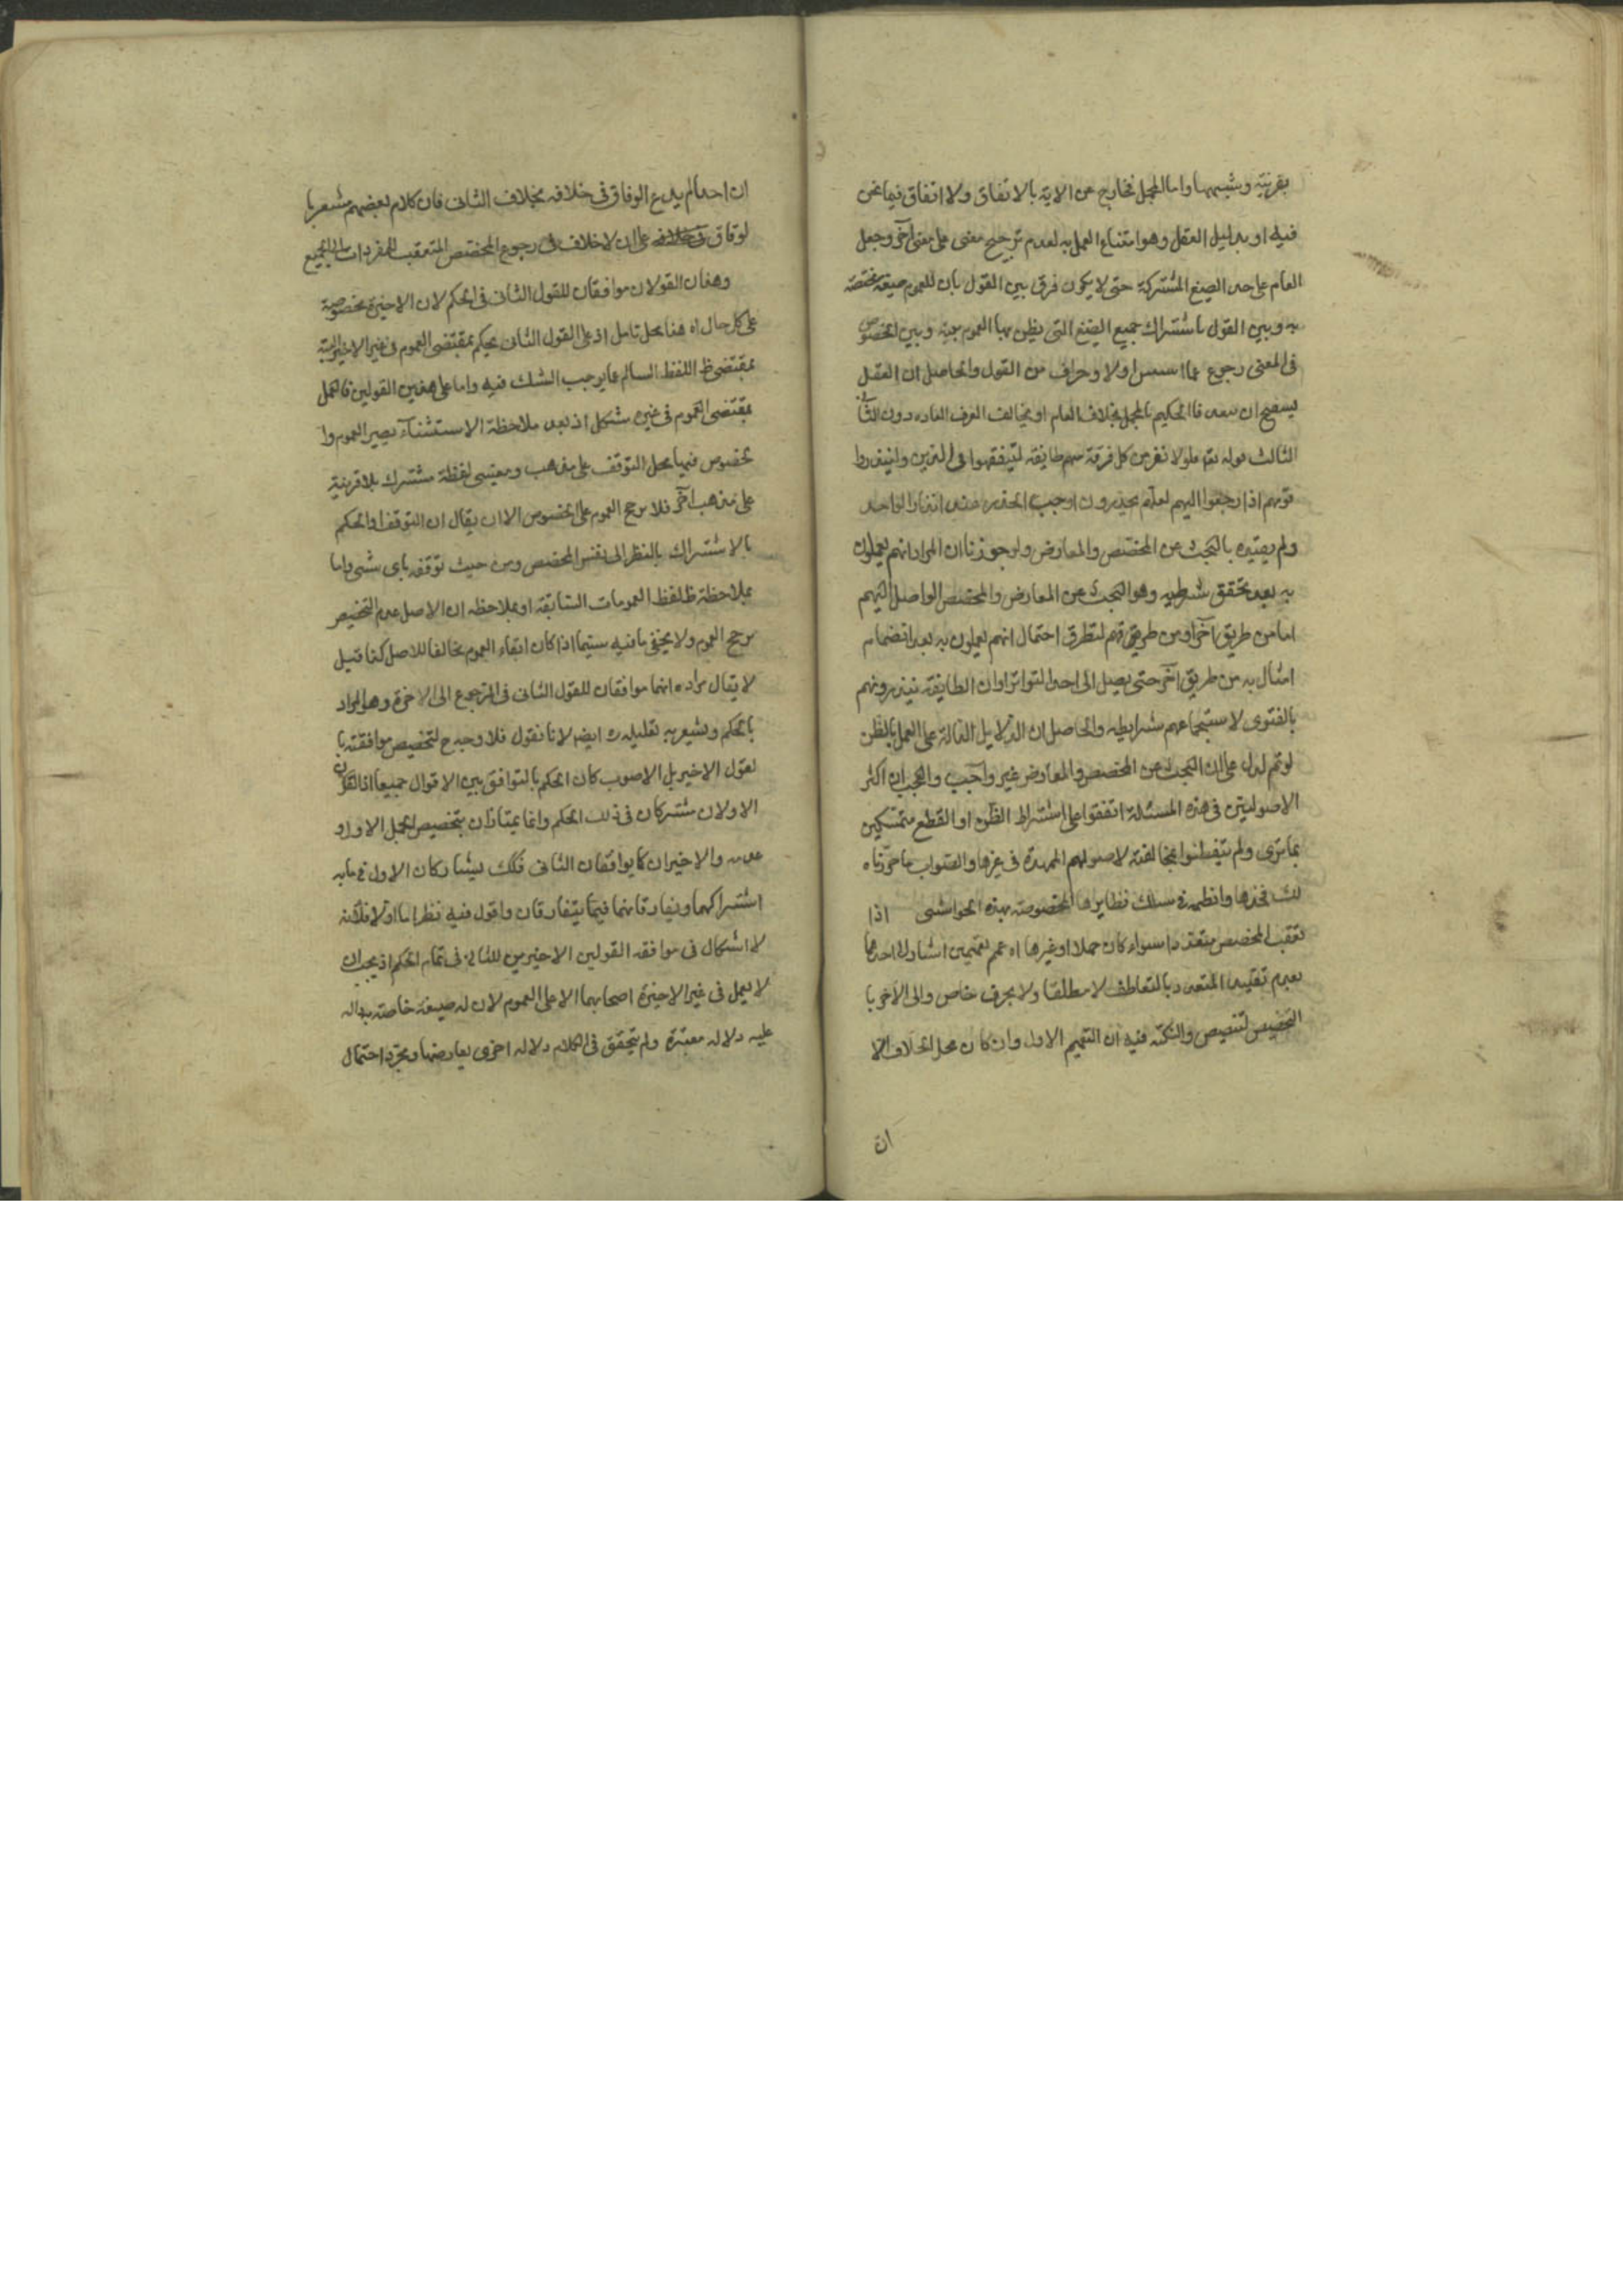 بقرينة وشبهها واما المجمل فخارج عن الاية بالاتفاق ولا اتفاق فيما نحن
فيه او بدليل العقل وهو امتناع العمل به لعدم ترجيح معنى على معنى آخر وجعل
العام على حد الصيغ المشتركة حتى لا يكون فرق بين القول بان للعموم صيغة مختصة
به وبين القول باشتراك جميع الصيغ التى يظن بها العموم بينه وبين الخصوص
فى المعنى رجوع عما اسس اولا وحراف من القول والحاصل ان العقل
ان الحكيم بالمجمل بخلاف العام او يخالف العرف العاده دون الثانى
الثالث قوله تعم فلولا نفر من كل فرقة منهم طايفة ليتفقهوا فى الدين ولينذروا
قومهم اذا رجعوا اليهم لعلهم يحذرون اوجب الحذر عند انذار الواحد
ولم يقيده بالبحث عن المخصص والمعارض ولو جوزنا ان المراد انهم يعملون
به بعد تحقق شرطه وهو البحث عن المعارض والمخصص الواصل اليهم
اما من طريق آخر او من طريقهم لتطرق احتمال انهم يعملون به بعد انضمام
امثاله به من طريق آخر حتى يصل الى احد التواتر او ان الطايفة ينذرونهم
بالفتوى لاستجماعهم شرايطه والحاصل ان الدلايل الدالة على العمل بالظن
لو تم لدل على ان البحث عن المخصص والمعارض غير واجب والعجب ان اكثر
الاصوليين فى هذه المسئلة اتفقوا على اشتراط الظن او القطع متمسكين
بما ترى ولم يتفطنوا بمخالفته لاصولهم الممهدة فى غيرها والصواب ما حررناه
لك فخذها وانظمه فى سلك نظايرها المخصوصة بهذه الحواشى اذا
تعقب المخصص متعددا سواء كان جملا او غيرها اه عمم تعميمين اشار الى احدهما
بعدم تقييد المتعدد بالتعاطف لا مطلقا ولا بحرف خاص والى الاخر با
التخصيص لتنصيص والنكتة فيه ان التعميم الاول وان كان محل الخلاف الا
ان
ان احدا لم يدع الوفاق فى خلافه بخلاف الثانى فان كلام بعضهم مشعر با
لوفاق على ان لا خلاف فى رجوع المخصص المتعقب للمفردات الى الجميع
وهذان القولان موافقان للقول الثانى فى الحكم لان الاخيرة مخصوصة
على كل حال اه هذا محل تامل اذ على القول الثانى يحكم بمقتضى العموم فى غير الاخيرة
بمقتضى ظ اللفظ السالم عما يوجب الشك فيه واما على هذين القولين فالعمل
بمقتضى العموم فى غيره مشكل اذ بعد ملاحظة الاستثناء يصير العموم وا
لخصوص فيها محل التوقف على مذهب لفظة مشترك بلا قرينة
على مذهب آخر فلا يرجح العموم على الخصوص الا ان يقال ان التوقف او الحكم
بالاشتراك بالنظر الى نفس المخصص ومن حيث توقفه باى شىء واما
بملاحظة ظ لفظ العمومات السابقة او بملاحظه ان الاصل عدم التخصيص
يرجح العموم ولا يخفى ما فيه سيما اذا كان ابقاء العموم مخالفا للاصل كذا قيل
لا يقال مراده انهما موافقان للقول الثانى فى الرجوع الى الاخرة وهو المراد
بالحكم ويشعر به تعليله ره ايضا لانا نقول فلا وجه ح لتخصيص موافقته با
لقول الاخير بل الاصوب كان الحكم بالتوافق بين الاقوال جميعا اذ القولان
الاولان مشتركان فى ذلك الحكم وانما يمتازان بتخصيص الجمل الاول او
عدمه والاخيران كما يوافقان الثانى فكك يشاركان الاول فى ما به
اشتراكهما ويفارقانهما فيما يتفارقان واقول فيه نظر اما اولا فلانه
لا اشكال فى موافقه القولين الاخيرين للثانى فى تمام الحكم اذ يجب ان
لا يعمل فى غير الاخيرة اصحابهما الا على العموم لان له صيغة خاصته
عليه دلاله معتبرة ولم يتحقق فى الكلام دلاله اخرى يعارضها ومجرد احتمال